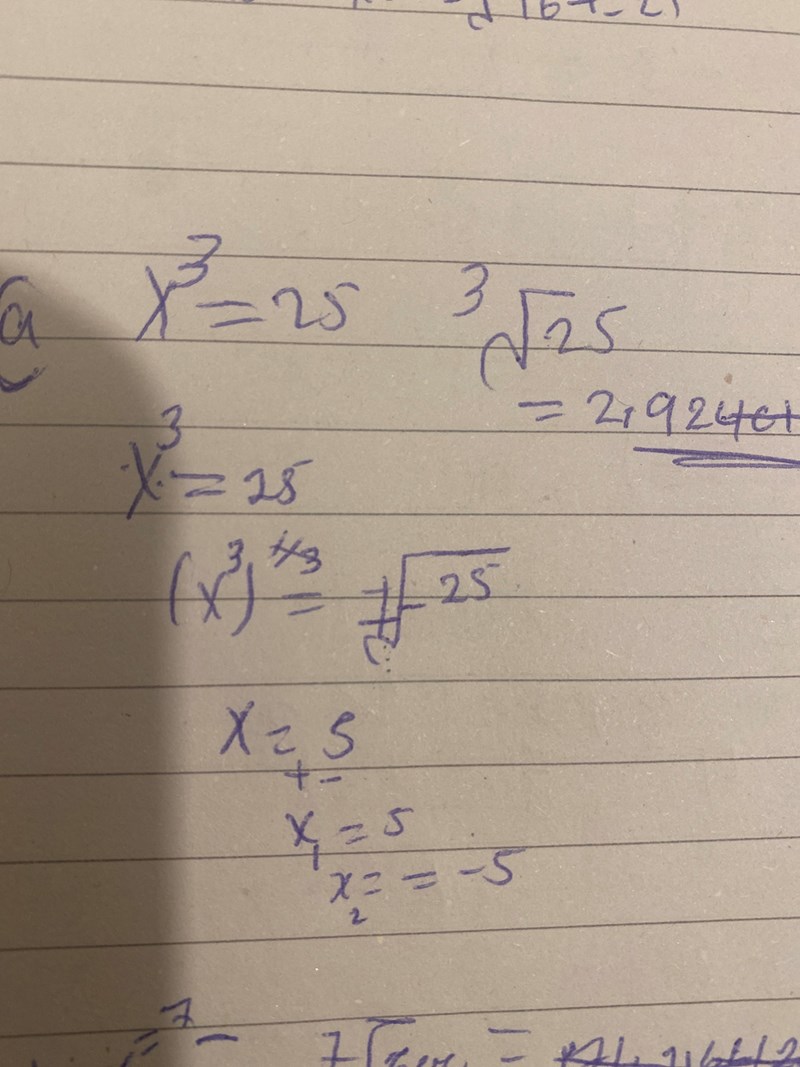 a x³ = 25 ³√25
= 2,924
x³ = 25
(x³)^1/3 = ± √25
x = 5
+ -
x₁ = 5
x₂ = = -5